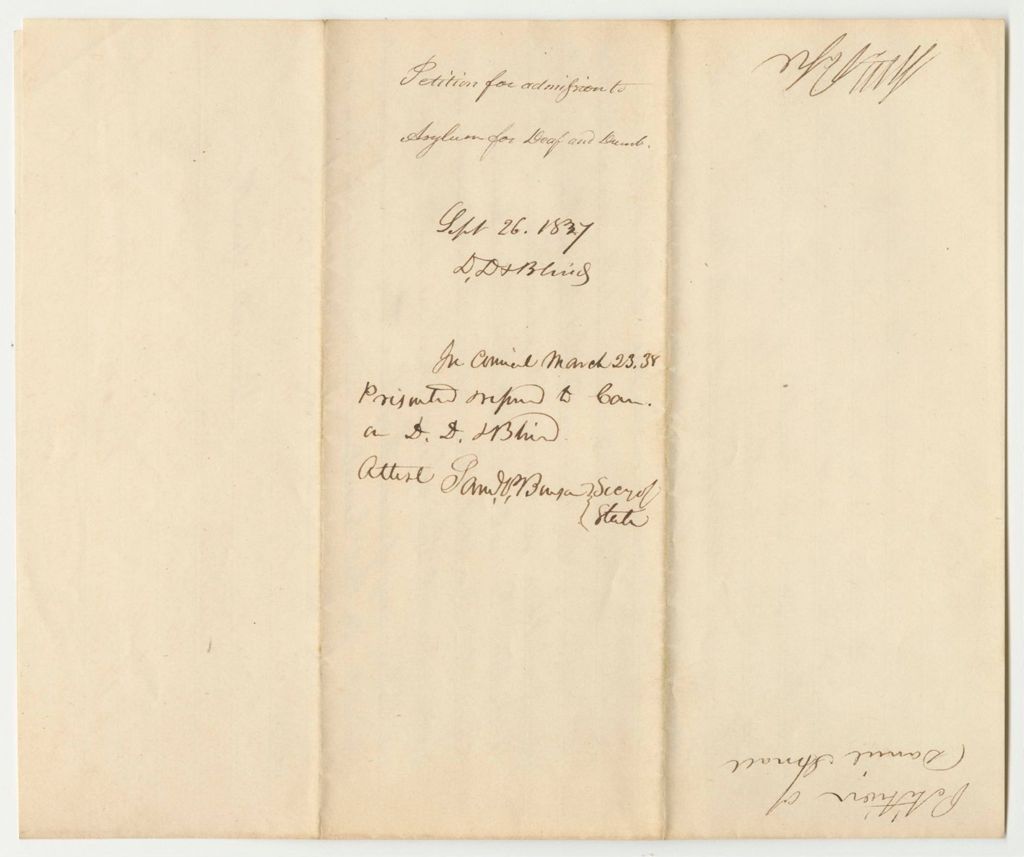 Petition for admission to
Asylum for Deaf and Dumb.
Sept 26. 1837
D. D & Blind
In Council March 23. 38
Presented & refered to Com.
on D. D. & Blind
Attest Saml P. Benson Secy of
State
Petition of
Daniel Small